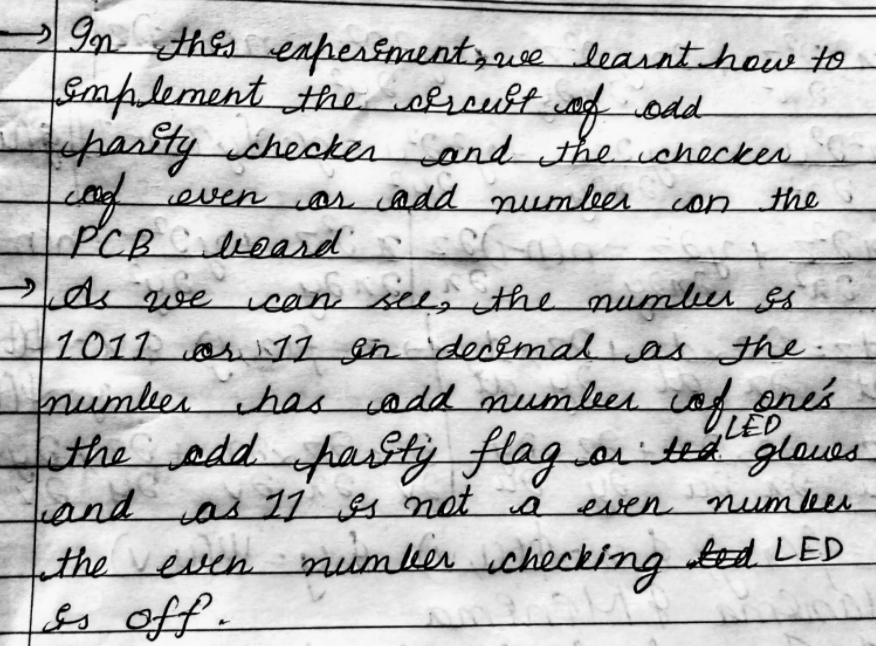 → In this experiment, we learnt how to
implement the circuit of odd
parity checker and the checker
of even or odd number on the
PCB board
→ As we can see, the number is
1011 or 11 in decimal as the
number has odd number of one's
the odd parity flag or led LED glows
and as 11 is not a even number
the even number checking led LED
is off.